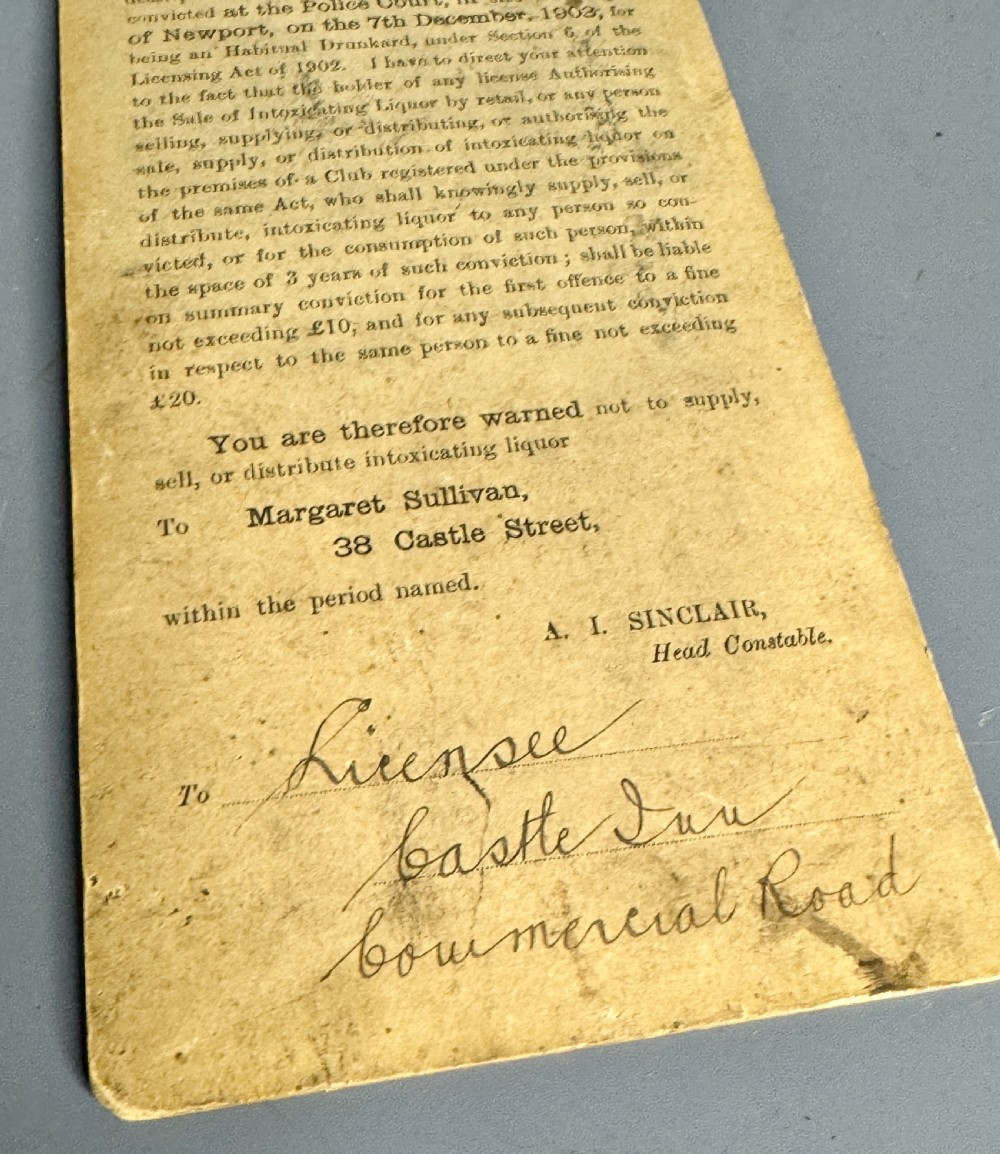 convicted at the Police Court, in
of Newport, on the 7th December, 1903, for
being an Habitual Drunkard, under Section 6, of the
Licensing Act of 1902. I have to direct your attention
to the fact that the holder of any license Authorising
the Sale of Intoxicating Liquor by retail, or any person
selling, supplying, or distributing, or authorising the
sale, supply, or distribution of intoxicating liquor on
the premises of a Club registered under the provisions
of the same Act, who shall knowingly supply, sell, or
distribute, intoxicating liquor to any person so con-
victed, or for the consumption of such person, within
the space of 3 years of such conviction; shall be liable
on summary conviction for the first offence to a fine
not exceeding £10, and for any subsequent conviction
in respect to the same person to a fine not exceeding
£20.
You are therefore warned not to supply,
sell, or distribute intoxicating liquor
To Margaret Sullivan,
38 Castle Street,
within the period named.
A. I. SINCLAIR,
Head Constable.
To Licensee
Castle Inn
Commercial Road